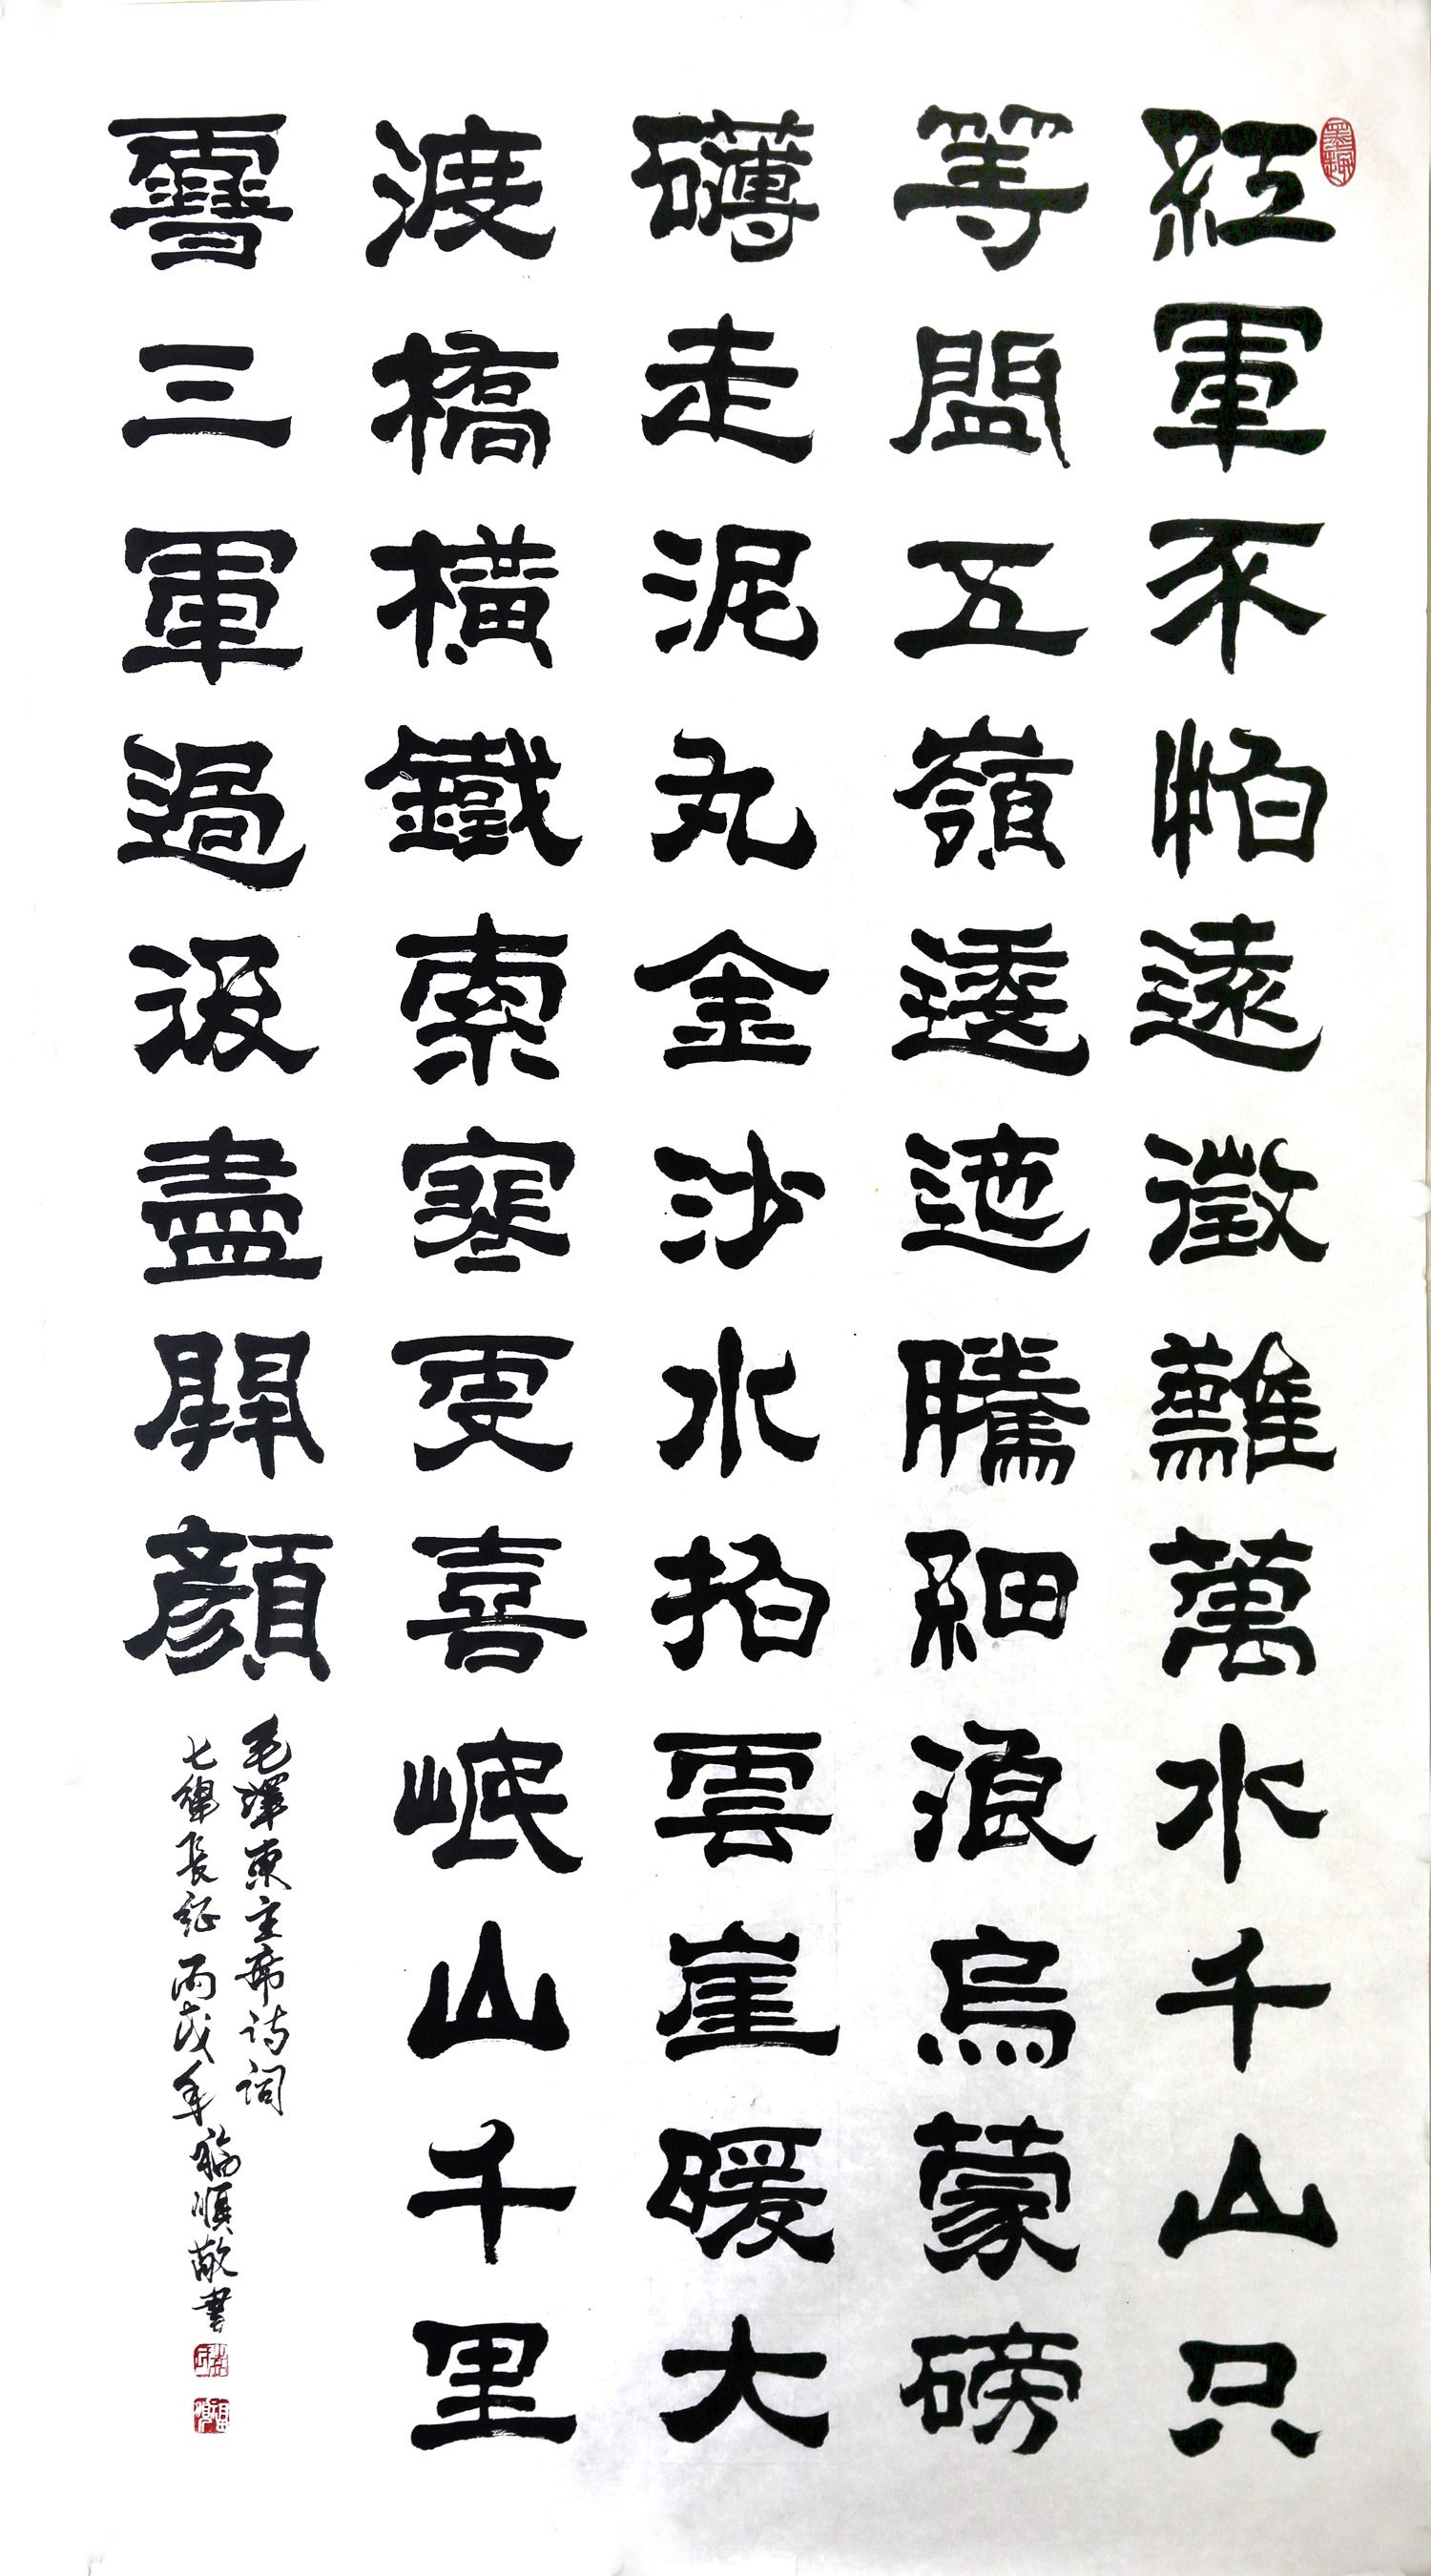 墨趣
紅軍不怕遠徵難萬水千山只
等閒五嶺逶迤騰細浪烏蒙磅
礴走泥丸金沙水拍雲崖暖大
渡橋橫鐵索寒更喜岷山千里
雪三軍過後盡開顏
毛澤東主席诗词
七律長征丙戌年福順敬書